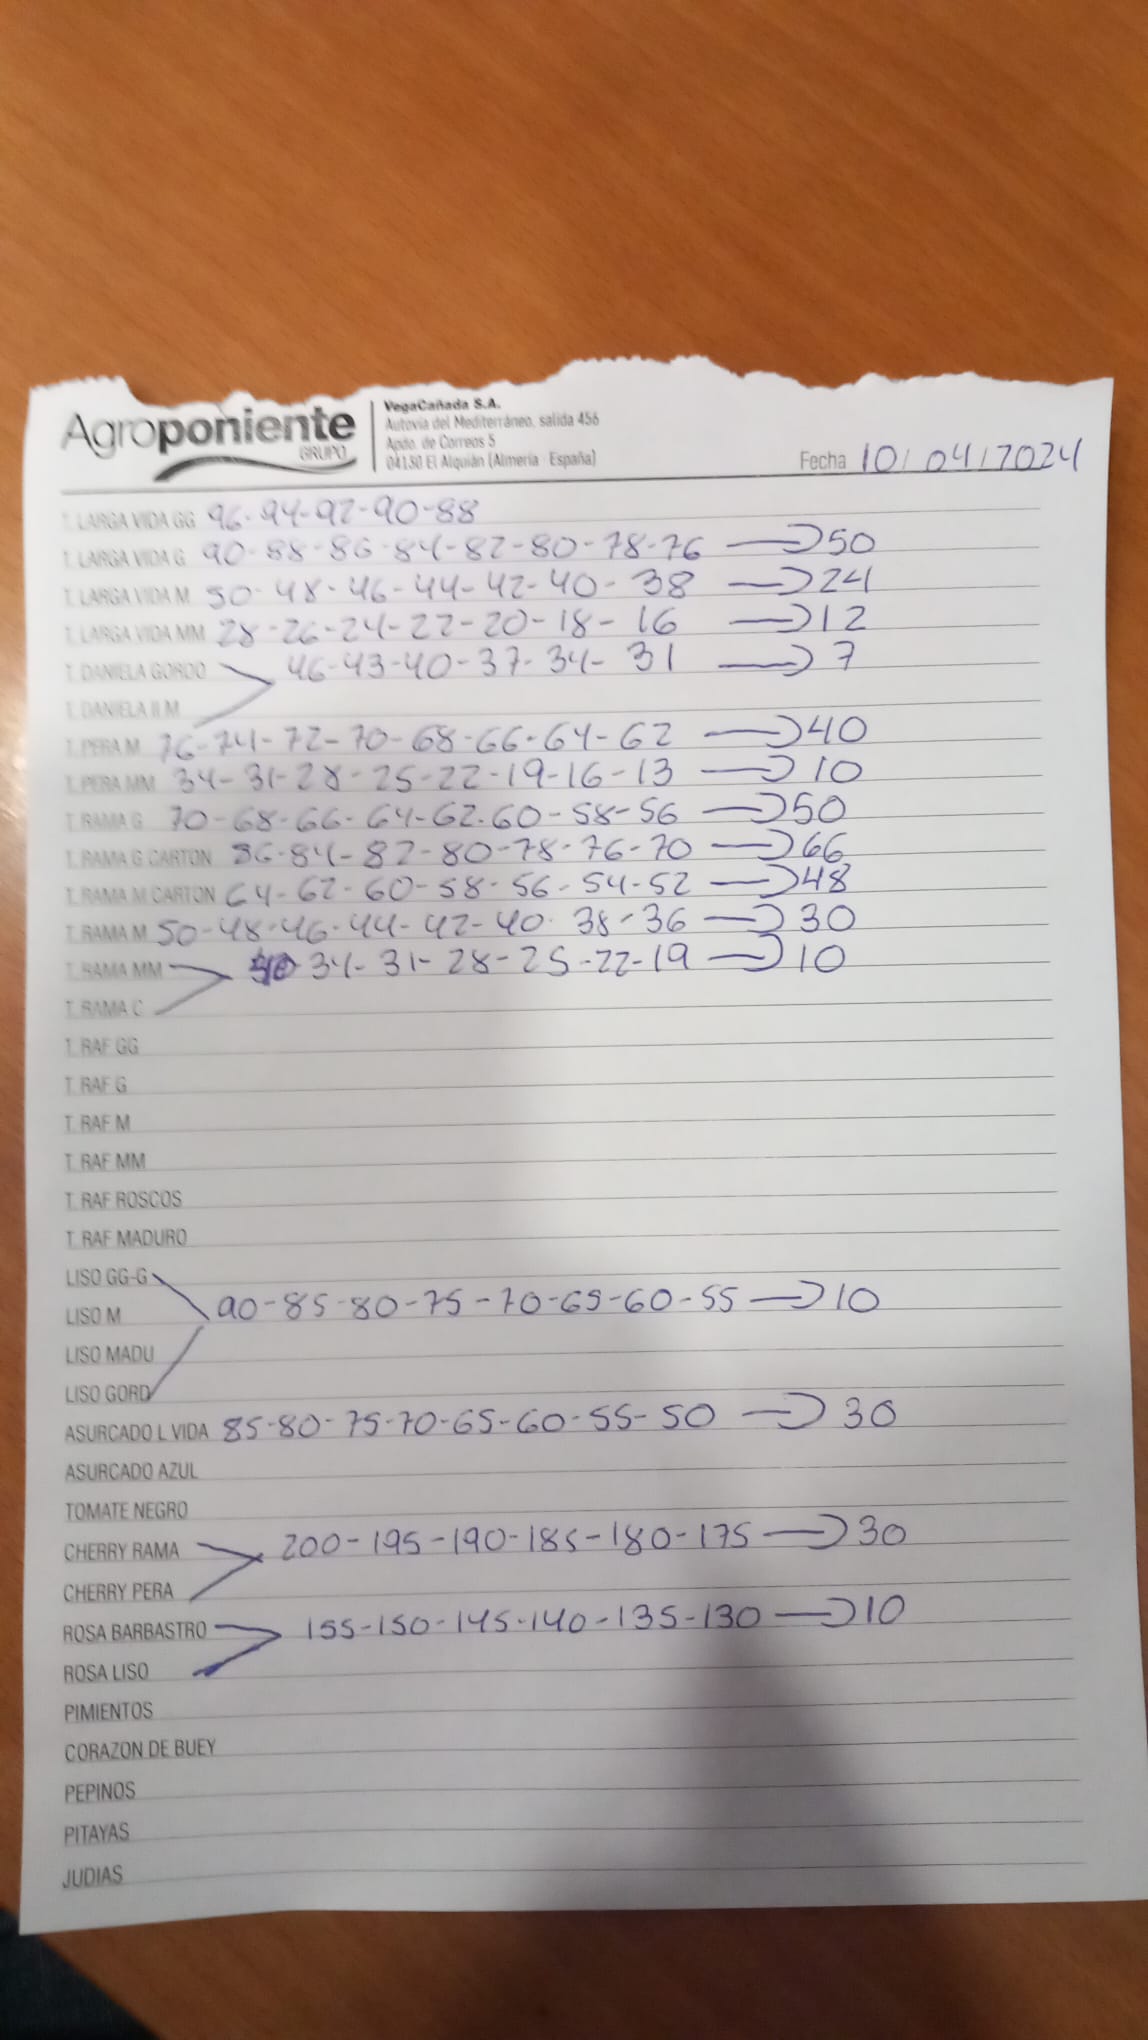 Agroponiente
GRUPO
VegaCañada S.A.
Autovía del Mediterráneo, salida 456
Apdo. de Correos 5
04130 El Alquián (Almería - España)
Fecha 10/04/2024
T. LARGA VIDA GG 96-94-92-90-88
T. LARGA VIDA G 90-88-86-84-82-80-78-76 → 50
T. LARGA VIDA M 50-48-46-44-42-40-38 → 24
T. LARGA VIDA MM 28-26-24-22-20-18-16 → 12
T. DANIELA GORDO 46-43-40-37-34-31 → 7
T. DANIELA II M
T. PERA M 76-74-72-70-68-66-64-62 → 40
T. PERA MM 34-31-28-25-22-19-16-13 → 10
T. RAMA G 70-68-66-64-62-60-58-56 → 50
T. RAMA G CARTON 86-84-82-80-78-76-70 → 66
T. RAMA M CARTON 64-62-60-58-56-54-52 → 48
T. RAMA M 50-48-46-44-42-40-38-36 → 30
T. RAMA MM 34-31-28-25-22-19 → 10
T. RAMA C
T. RAF GG
T. RAF G
T. RAF M
T. RAF MM
T. RAF ROSCOS
T. RAF MADURO
LISO GG-G
LISO M 90-85-80-75-70-65-60-55 → 10
LISO MADU
LISO GORD
ASURCADO L VIDA 85-80-75-70-65-60-55-50 → 30
ASURCADO AZUL
TOMATE NEGRO
CHERRY RAMA 200-195-190-185-180-175 → 30
CHERRY PERA
ROSA BARBASTRO 155-150-145-140-135-130 → 10
ROSA LISO
PIMIENTOS
CORAZON DE BUEY
PEPINOS
PITAYAS
JUDIAS